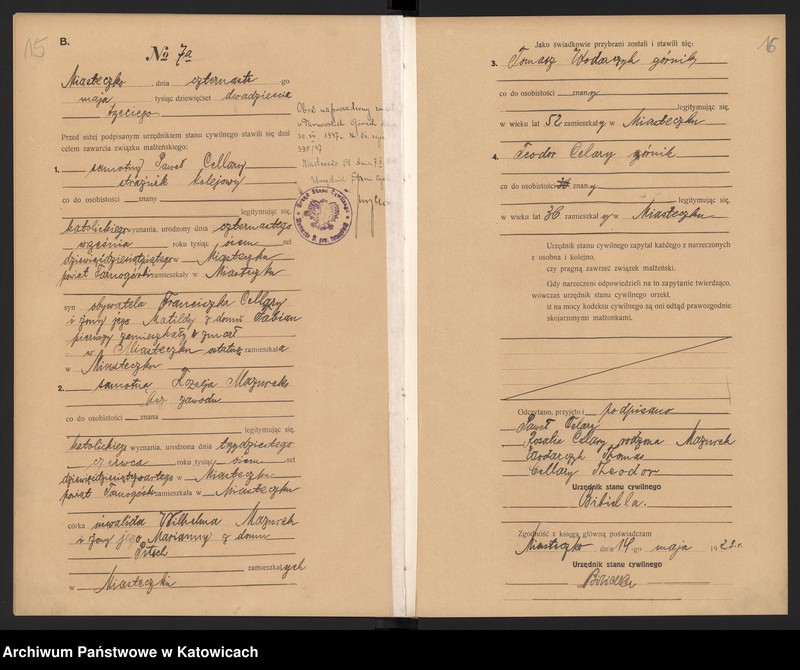 15
B.
№ 7a
Miasteczko, dnia czternaste -go
maja tysiąc dziewięćset dwadzieścia
trzeciego
Przed niżej podpisanym urzędnikiem stanu cywilnego stawili się dziś
celem zawarcia związku małżeńskiego:
1. samotny Paweł Cellary
strażnik kolejowy
co do osobistości znany
legitymując się,
katolickiego wyznania, urodzony dnia czternastego
września roku tysiąc osiem set
dziewięćdziesiątpiątego w Miasteczku
powiat Tarnogórski zamieszkały w Miasteczku
syn obywatela Franciszka Cellary
i żony jego Matyldy z domu Fabian
pierwszy zamieszkały i zmarł
w Miasteczku ostatnia zamieszkała
w Miasteczku
2. samotna Rozalja Mazurek
bez zawodu
co do osobistości znana
legitymując się,
katolickiego wyznania, urodzona dnia trzydziestego
czerwca roku tysiąc osiem set
dziewięćdziesiątczwartego w Miasteczku
powiat Tarnogórski zamieszkała w Miasteczku
córka inwalida Wilhelma Mazurek
i żony jego Marianny z domu
Pitsch
zamieszkałych
w Miasteczku
16
Jako świadkowie przybrani zostali i stawili się:
3. Tomasz Wodarczyk górnik
co do osobistości znany
legitymując się,
w wieku lat 52 zamieszkały w Miasteczku
4. Teodor Celary górnik
co do osobistości znany
legitymując się,
w wieku lat 36 zamieszkały w Miasteczku
Urzędnik stanu cywilnego zapytał każdego z narzeczonych
z osobna i kolejno,
czy pragną zawrzeć związek małżeński.
Gdy narzeczeni odpowiedzieli na to zapytanie twierdząco,
wówczas urzędnik stanu cywilnego orzekł,
iż na mocy kodeksu cywilnego są oni odtąd prawozgodnie
skojarzonymi małżonkami.
Odczytano, przyjęto i podpisano
Paweł Celary
Rosalie Cellary rodzona Mazurek
Wodarczyk Thomas
Cellary Theodor
Urzędnik stanu cywilnego
Bibiella.
Zgodność z księgą główną poświadczam
Miasteczko, dnia 14 -go maja 1923.r.
Urzędnik stanu cywilnego
Bibiella
Archiwum Państwowe w Katowicach